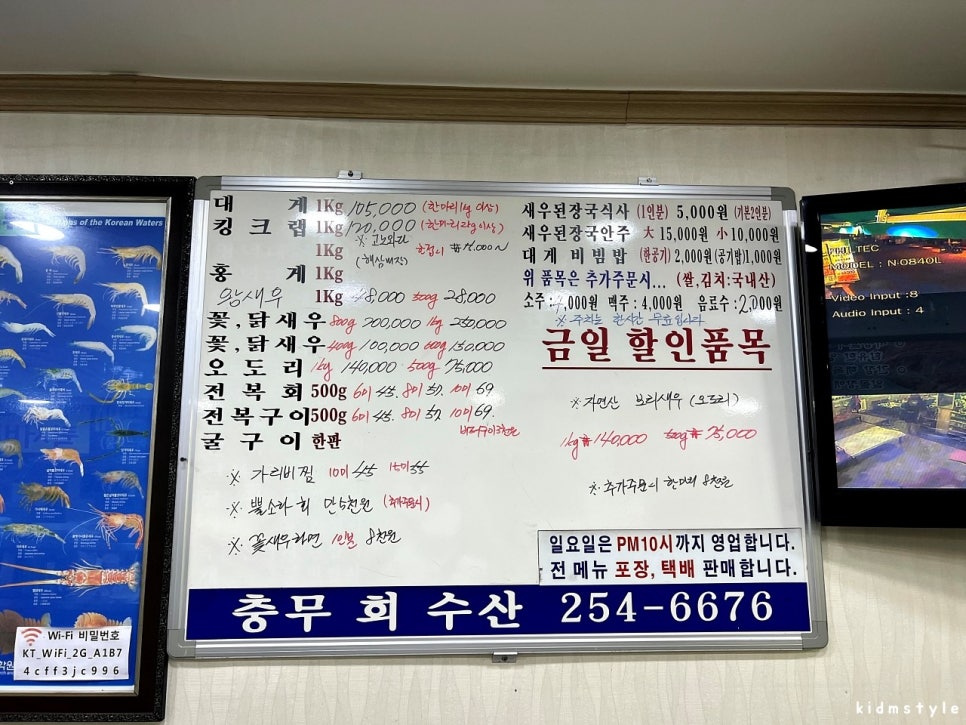 ns of the Korean Waters
대 게 1Kg 105,000 (한마리1kg 이상)
킹 크 렙 1Kg 120,000 (한마리2kg이상)
1Kg
홍 게 1Kg
왕새우 1Kg 48,000 500g 28,000
꽃, 닭 새 우 800g 200,000 1kg 250,000
꽃, 닭 새 우 400g 100,000 600g 150,000
오 도 리 1kg 140,000 500g 75,000
전 복 회 500g 6미 45. 8미 57. 10미 69
전복구이 500g 6미 45. 8미 57. 10미 69.
굴 구 이 한판
※ 가리비찜 10미 45 15미 55
※ 뿔소라 회 만5천원 (추가주문시)
※ 꽃새우라면 1인분 8천원
새우된장국식사 (1인분) 5,000원 (기본2인분)
새우된장국안주 大 15,000원 小 10,000원
대 게 비 빔 밥 (쌀공기) 2,000원 (공기밥)1,000원
위 품목은 추가주문시... (쌀,김치:국내산)
소주: 4,000원 맥주: 4,000원 음료수: 2,000원
금일 할인품목
※ 자연산 보리새우 (오도리)
1kg ₩140,000 500g ₩75,000
※ 추가주문시 한마리 8천원
일요일은 PM10시까지 영업합니다.
전 메뉴 포장, 택배 판매합니다.
충무 회 수산 254-6676
Wi-Fi 비밀번호
KT_WiFi_2G_A1B7
4cff3jc996
MODEL : N-0840L
Video Input :8
Audio Input : 4
kidmstyle